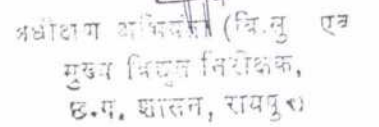 अधीक्षण अभियंता (वि.सु एवं
मुख्य विद्युत निरीक्षक,
छ.ग. शासन, रायपुर